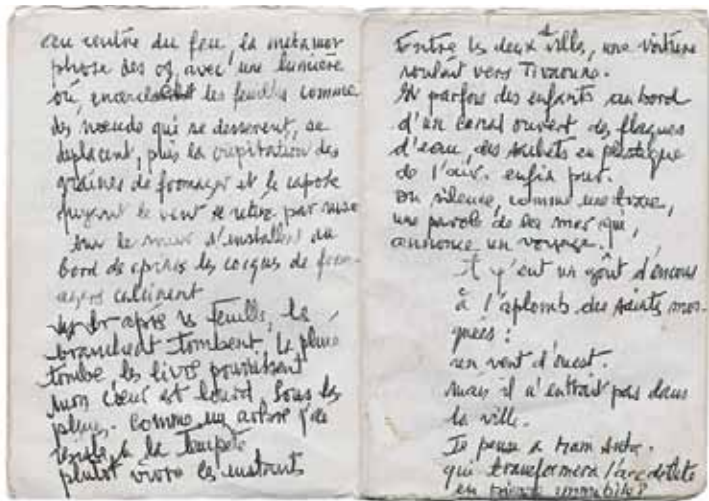 au centre du feu, la métamor
phose des os, avec une lumière
où, les feuilles comme
des nœuds qui se desserrent, se
déplacent, puis la crépitation des
graines de fromager et le capoc
fuyant le vent se retire par
sur le s'installent au
bord de les coques de from-
agers calcinent
après les feuilles, les
branches tombent. La pluie
tombe les livres pourrissent
mon cœur est lourd. Sous les
pluies. Comme un arbre j'ai
résisté à la tempête
plutôt vivre les instants
Entre les deux villes, une voiture
roulant vers Tivaoune.
Et parfois des enfants au bord
d'un canal ouvert des flaques
d'eau, des sachets en plastique
de l'air. enfin pur.
un silence, comme une trace,
une parole de la mer qui,
annonce un voyage.
Il y eut un goût d'encens
à l'aplomb des saints mos-
quées :
un vent d'ouest.
mais il n'entrait pas dans
la ville.
Je pense à
qui transformera
en pierre immobile ?